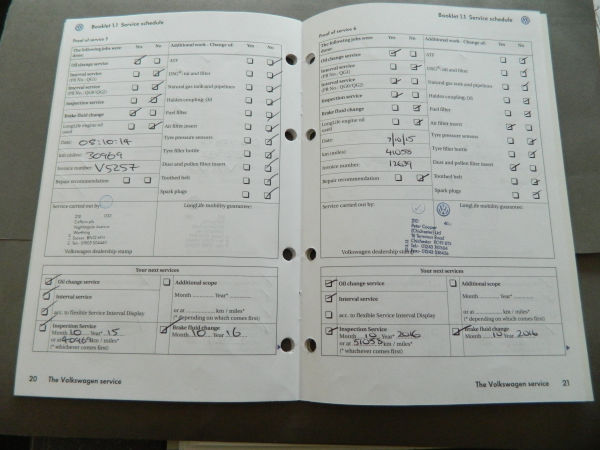 Booklet 1.1 Service schedule
Proof of service 5
The following jobs were done:
Yes No
Additional work - Change of:
Yes No
Oil change service
ATF
Interval service
(PR No.: QG1)
DSG® oil and filter
Interval service
(PR No.: QG0/QG2)
Natural gas tank and pipelines
Inspection service
Haldex coupling: Oil
Brake fluid change
Fuel filter
LongLife engine oil used
Air filter insert
Date: 08.10.14
Tyre pressure sensors
km (miles): 30969
Tyre filler bottle
Invoice number: V5257
Dust and pollen filter insert
Repair recommendation
Toothed belt
Spark plugs
Service carried out by:
LongLife mobility guarantee:
Caffyns plc
Worthing
Volkswagen dealership stamp
Your next services
Oil change service
Additional scope
Interval service
Month ........ Year* ........
acc. to flexible Service Interval Display
or at ........ km / miles*
(* depending on which comes first)
Inspection Service
Month 10 Year* 15
or at 40969 km / miles*
(* whichever comes first)
Brake fluid change
Month 10 Year* 16
20 The Volkswagen service
Booklet 1.1 Service schedule
Proof of service 6
The following jobs were done:
Yes No
Additional work - Change of:
Yes No
Oil change service
ATF
Interval service
(PR No.: QG1)
DSG® oil and filter
Interval service
(PR No.: QG0/QG2)
Natural gas tank and pipelines
Inspection service
Haldex coupling: Oil
Brake fluid change
Fuel filter
LongLife engine oil used
Air filter insert
Date: 7/10/15
Tyre pressure sensors
km (miles): 41058
Tyre filler bottle
Invoice number: 12639
Dust and pollen filter insert
Repair recommendation
Toothed belt
Spark plugs
Service carried out by:
LongLife mobility guarantee:
Peter Cooper
(Chichester) Ltd
Chichester
Volkswagen dealership stamp
Your next services
Oil change service
Additional scope
Interval service
Month ........ Year* ........
acc. to flexible Service Interval Display
or at ........ km / miles*
(* depending on which comes first)
Inspection Service
Month 10 Year* 2016
or at 51058 km / miles*
(* whichever comes first)
Brake fluid change
Month 10 Year* 2016
The Volkswagen service 21